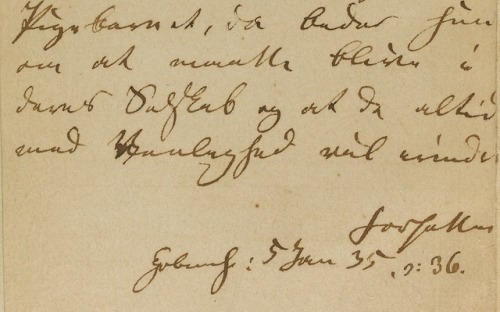 Pigebarnet, da beder hun
om at maatte blive i
deres Selskab og at de altid
med Venlighed vil erindr
Forfatter
Kobenh: 5 Jan 35, ɔ: 36.